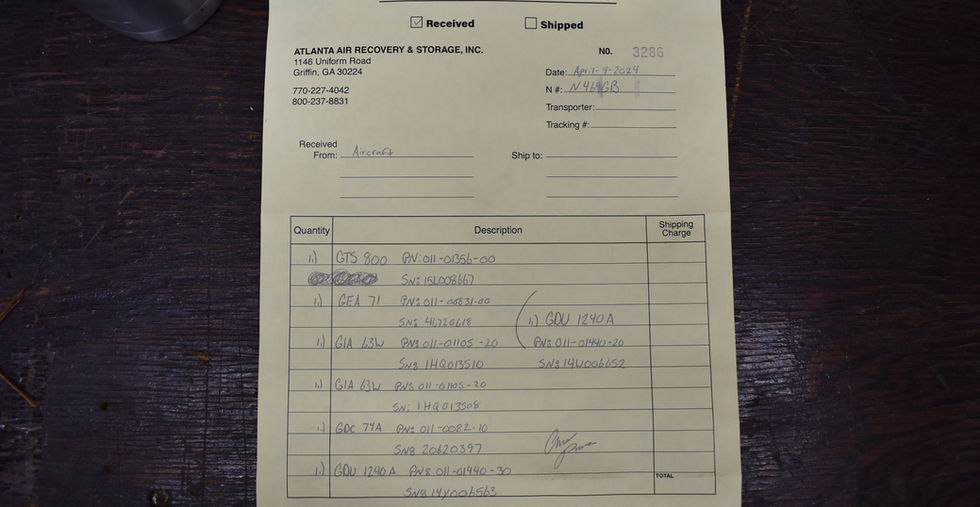 ☑ Received ☐ Shipped
ATLANTA AIR RECOVERY & STORAGE, INC.
1146 Uniform Road
Griffin, GA 30224
770-227-4042
800-237-8831
NO. 3286
Date: April-9-2024
N #: N469GB
Transporter:
Tracking #:
Received
From: Aircraft
Ship to:
Quantity Description Shipping
Charge
1.) GTS 800 PN: 011-01356-00
SN: 15L008667
1.) GEA 71 PN: 011-00831-00
SN: 46720618
1.) GIA 63W PN: 011-01105-20
SN: 1HQ013510
1.) GDU 1240A
PN: 011-01440-20
SN: 14W006652
1.) GIA 63W PN: 011-01105-20
SN: 1HQ013508
1.) GDC 74A PN: 011-0082-10
SN: 20620397
1.) GDU 1240A PN: 011-01440-30
SN: 14Y006563
TOTAL